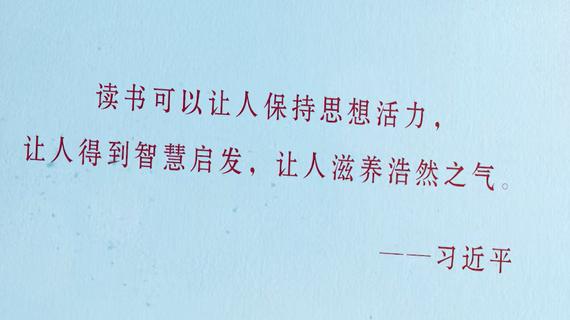 读书可以让人保持思想活力，
让人得到智慧启发，让人滋养浩然之气。
——习近平